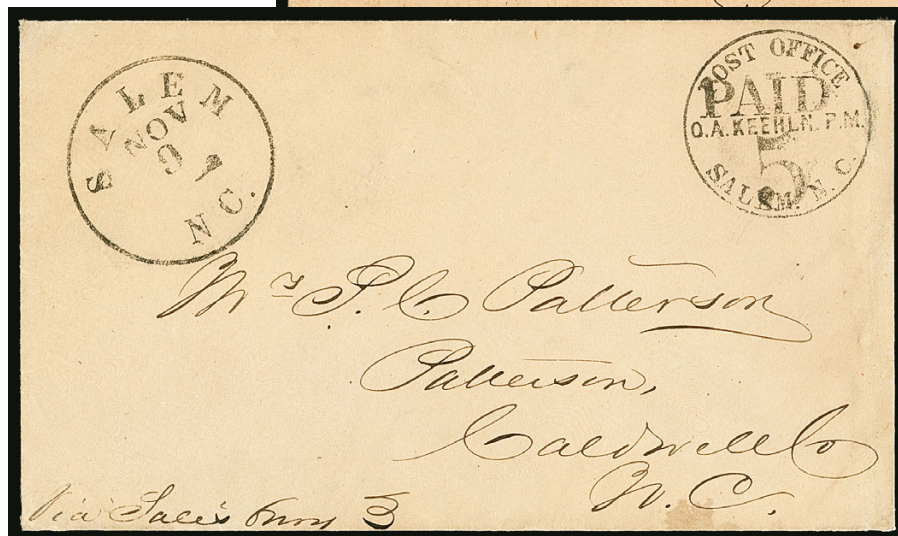 SALEM
NOV
9
N C.
POST OFFICE
PAID
O.A. KEEHLN. P.M.
5
SALEM. N. C.
Mrs P. C Patterson
Patterson,
Caldwell Co
N. C.
Via Salisbury 3